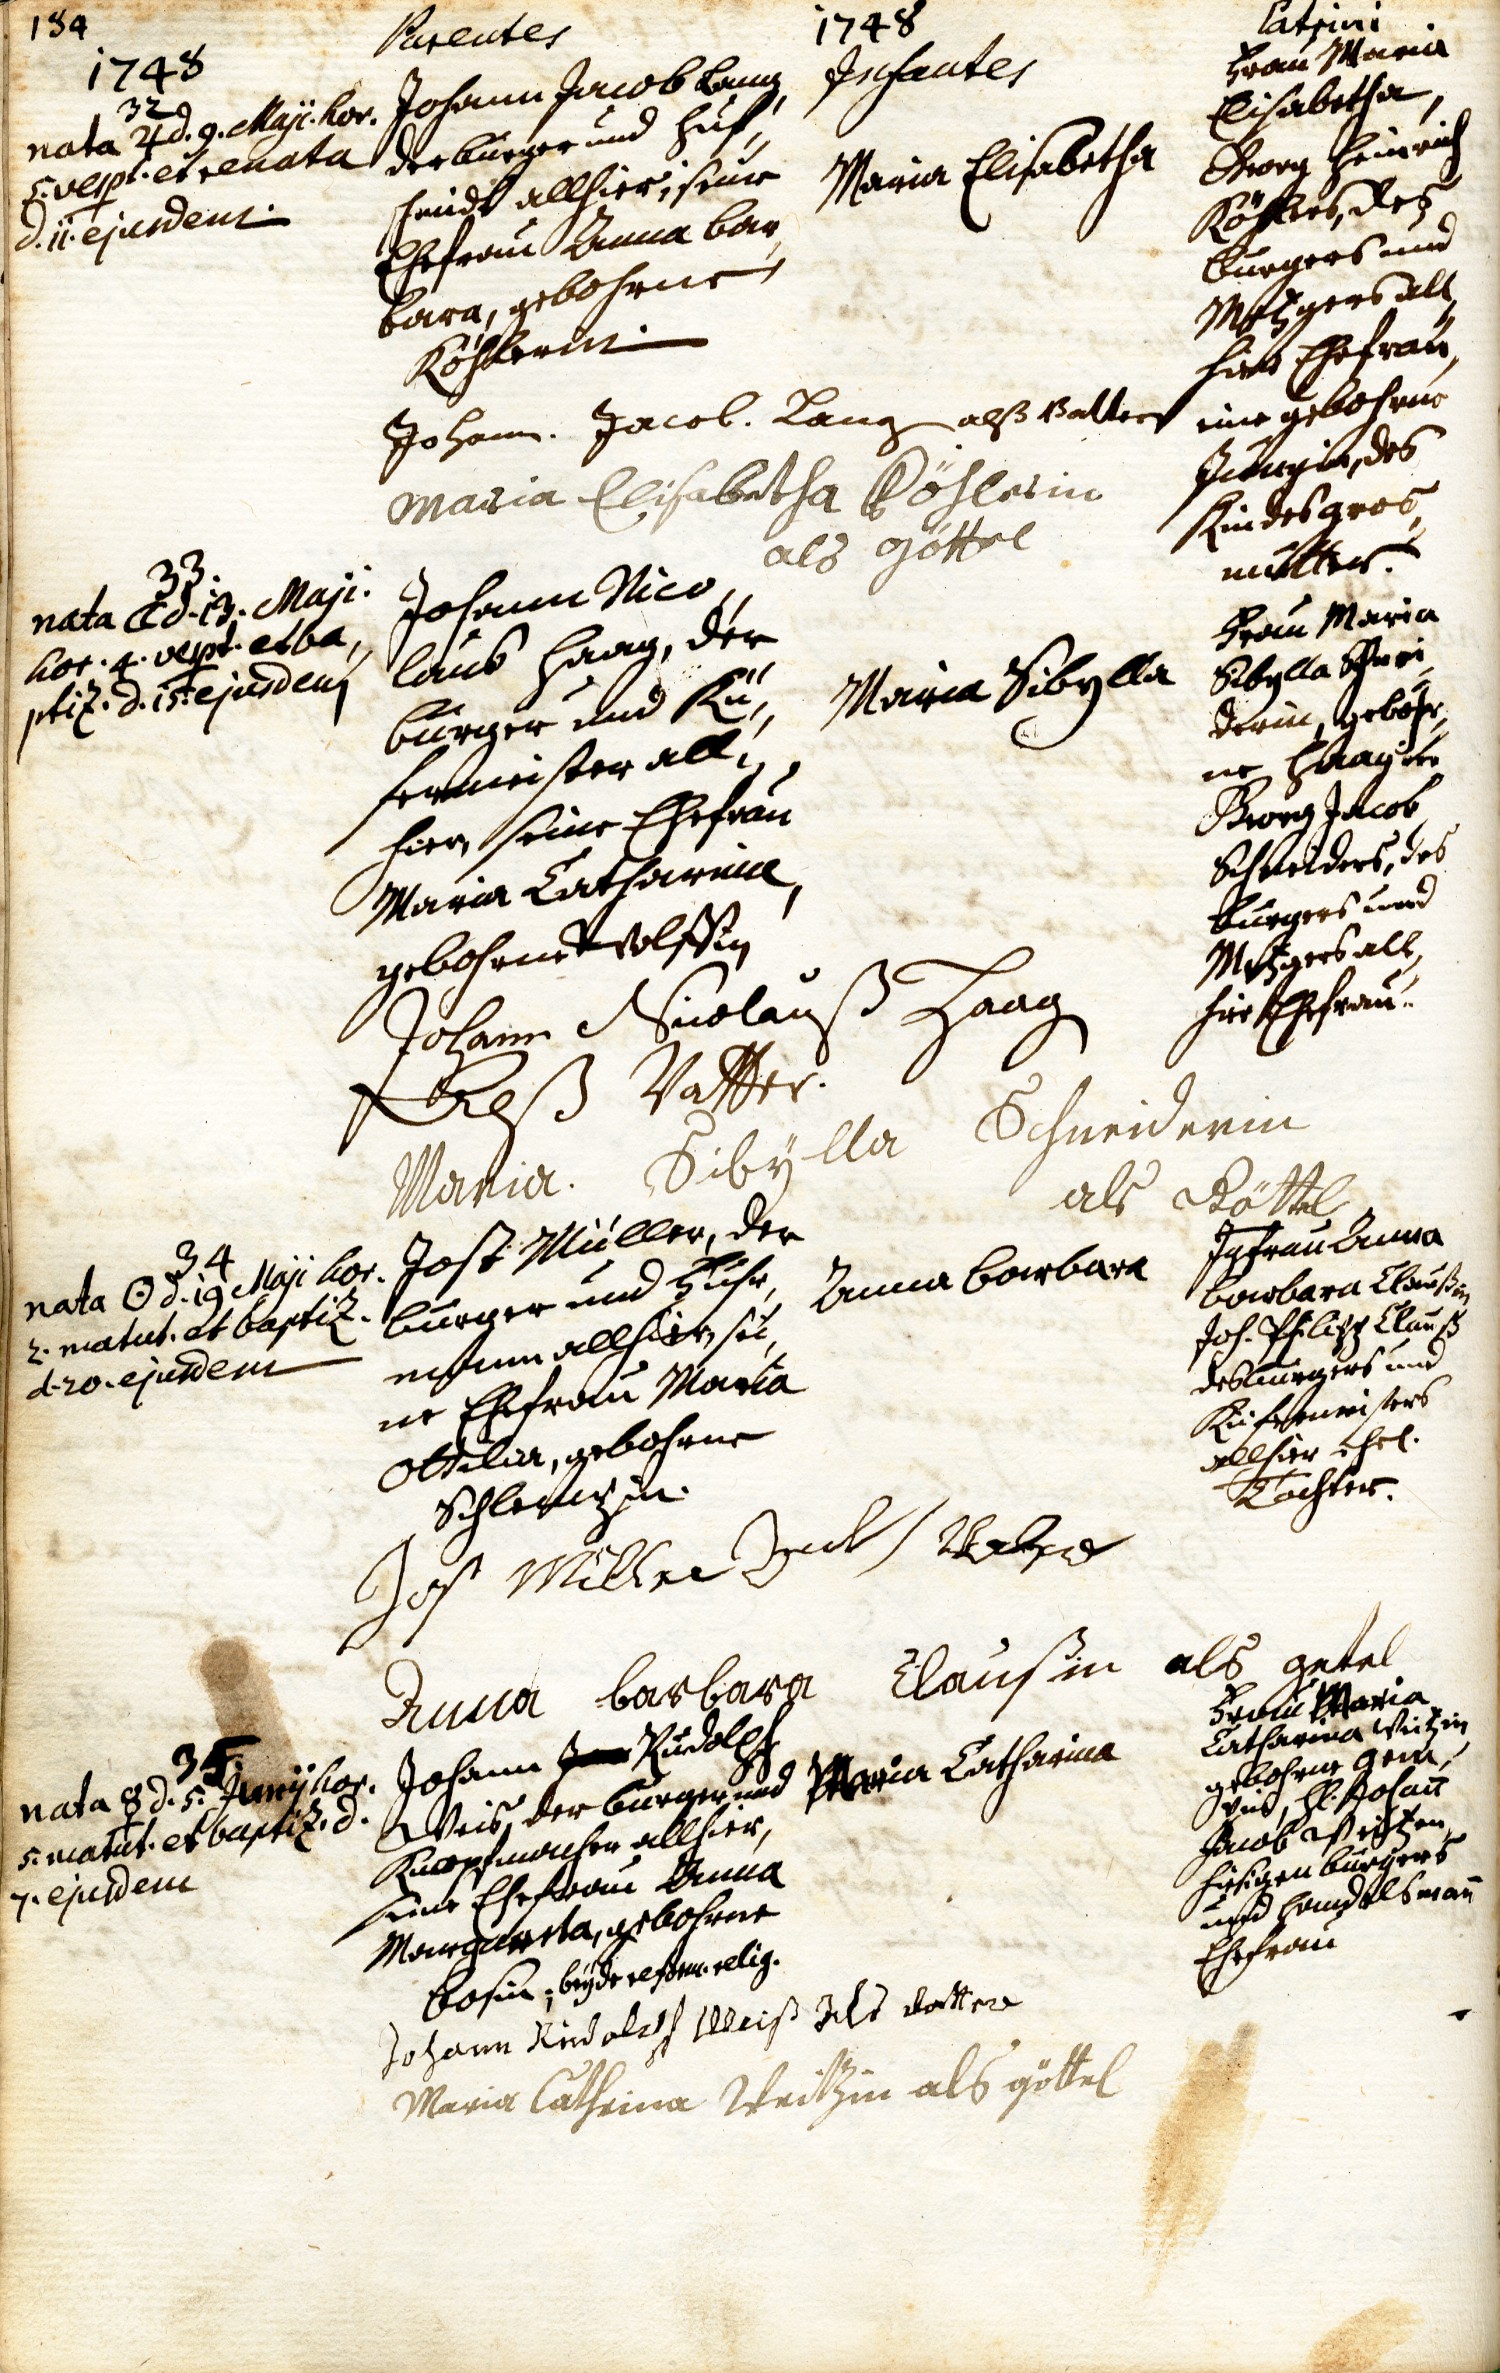 184
1748
Parentes
1748
Infantes
Patrini
32
nata ♃ d. 9. Maji. hor.
5. vespt. et renata
d. 11. ejusdem.
Johann Jacob Lang
der burger und Huf,,
schmidt allhier, seine
Ehefrau Anna Bar,,
bara, gebohrne
Köhlerin
Maria Elisabetha
Frau Maria
Elisabetha,
Georg Heinrich
Köhlers, des
burgers und
Metzgers all,,
hier Ehefrau,
eine gebohrne
Jungin, des
Kindes gros,,
mutter.
Johann. Jacob. Lang alß Vatter
Maria Elisabetha Köhlerin
als göttel
33.
nata ☾ d. 13. Maji.
hor. 4. vespt. et ba,,
ptiz. d. 15. ejusdem
Johann Nico,,
laus Haag, der
burger und Kü,,
fermeister all,,
hier, seine Ehefrau
Maria Catharina,
gebohrne Wolffin
Maria Sibylla
Frau Maria
Sibylla Schnei,,
derin, gebohr,,
ne Haagin
Georg Jacob
Schneiders, des
burgers und
Metzgers all,,
hier Ehefrau.
Johann Nicolauß Haag
Alß Vatter.
Maria. Sibylla Schneiderin
als Göttel
34
nata ☉ d. 19 Maji hor.
2. matut. et baptiz.
d. 20. ejusdem
Jost Müller, der
burger und Fuhr,,
mann allhier, sei,,
ne Ehefrau Maria
Ottilia, gebohrne
Schlemzin.
Anna Barbara
Jgfrau Anna
Barbara Claußin
Joh. Philipp Clauß
des burgers und
Küfermeisters
allhier ehel.
Tochter.
Jost Müller Vatter
Anna barbara Claußin als getel
35
nata ☿ d. 5. Junij hor.
5. matut. et baptiz. d.
7. ejusdem
Johann Rudolph
Weis, der burger und
Knopfmacher allhier,
seine Ehefrau Anna
Margareta, gebohrne
Bosin, beyde reform. relig.
Maria Catharina
Frau Maria
Catharina Weitzin
gebohrne
H. Johann
Jacob Weitzen
hiesigen burgers
und Handelsmann
Ehefrau
Johann Rudolph Weiß Als Vatter
Maria Cathrina Weitzin als göttel